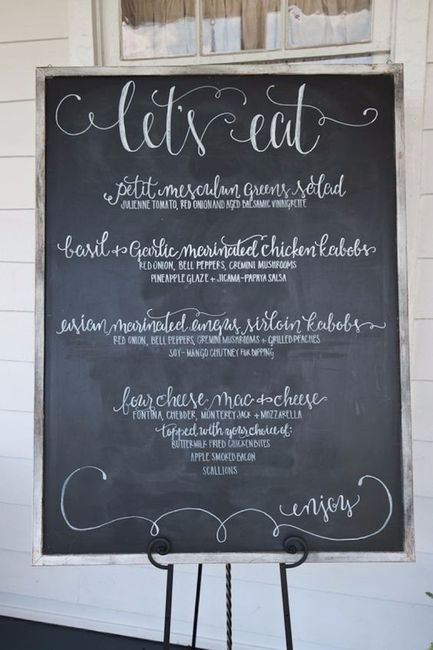 let's eat
petit mesculun greens salad
JULIENNE TOMATO, RED ONION AND AGED BALSAMIC VINAIGRETTE
basil + garlic marinated chicken kabobs
RED ONION, BELL PEPPERS, CREMINI MUSHROOMS
PINEAPPLE GLAZE + JICAMA-PAPAYA SALSA
asian marinated angus sirloin kabobs
RED ONION, BELL PEPPERS, CREMINI MUSHROOMS + GRILLED PEACHES
SOY-MANGO CHUTNEY FOR DIPPING
four cheese mac + cheese
FONTINA, CHEDDER, MONTEREY JACK + MOZZARELLA
topped with your choice of:
BUTTERMILK FRIED CHICKEN BITES
APPLE SMOKED BACON
SCALLIONS
enjoy